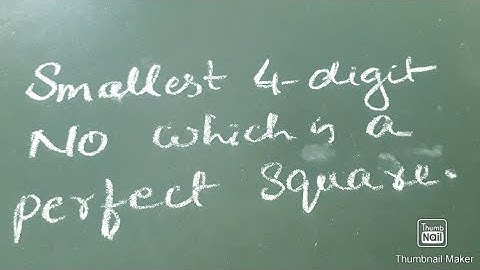 Smallest 4-digit
NO which is a
perfect square.
Thumb
Nail
Thumbnail Maker